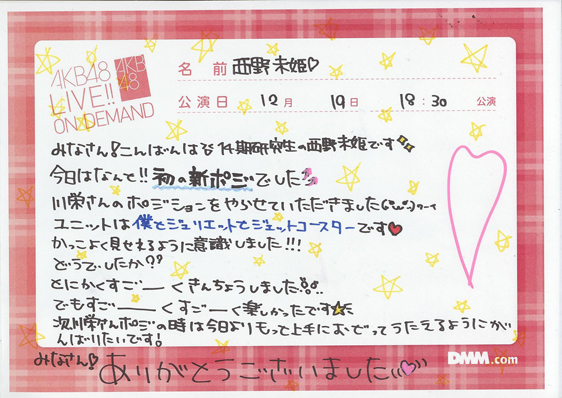 AKB48
LIVE!!
ON DEMAND
AKB
48
名 前 西野未姫♡
公演日 12月 19日 18:30 公演
みなさん!こんばんは 14期研究生の西野未姫です
今日はなんと!!初の新ポジでした
川栄さんのポジションをやらせていただきました(*^_^*)ワーイ
ユニットは僕とジュリエットとジェットコースターです♥
かっこよく見せれるように意識しました!!!
どうでしたか??
とにかくすごーーくきんちょうしました!!
でもすごーーくすごーく楽しかったです
次川栄さんポジの時は今日よりもっと上手におどってうたえるようにが
んばりたいです!
みなさん!ありがとうございました♡
DMM.com